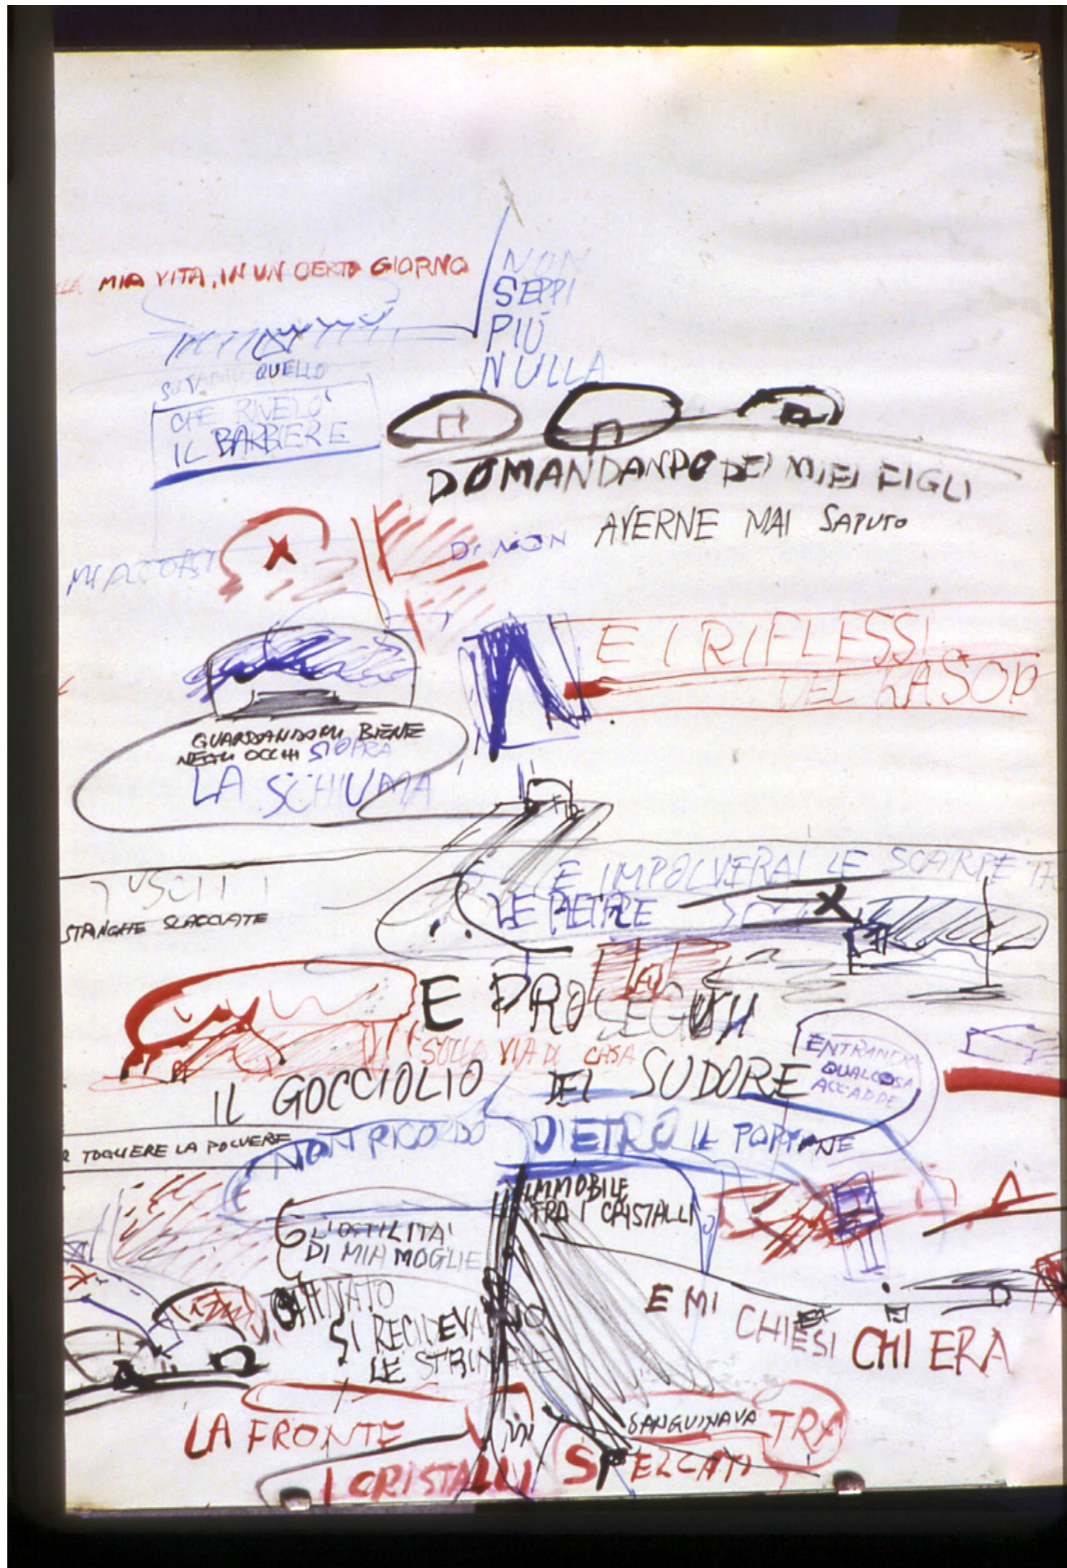 LA MIA VITA, IN UN CERTO GIORNO
NON
SEPPI
PIÙ
NULLA
QUELLO
CHE RIVELÒ
IL BARBIERE
DOMANDANDO DEI MIEI FIGLI
DI NON AVERNE MAI SAPUTO
E I RIFLESSI
DEL RASOIO
GUARDANDOMI BENE
NEGLI OCCHI SOPRA
LA SCHIUMA
USCII
E IMPOLVERAI LE SCARPE
STANGHE SLACCIATE
LE PIETRE
E PROSEGUII
SULLA VIA DI CASA
IL GOCCIOLIO DEL SUDORE
ENTRANDO
QUALCOSA
ACCADDE
TOGLIERE LA POLVERE
NON RICORDO DIETRO IL
IMMOBILE
FRA I CRISTALLI
L'OSTILITA'
DI MIA MOGLIE
SI RECIDEVANO
LE
E MI CHIESI CHI ERA
LA FRONTE
SANGUINAVA TRA
I CRISTALLI